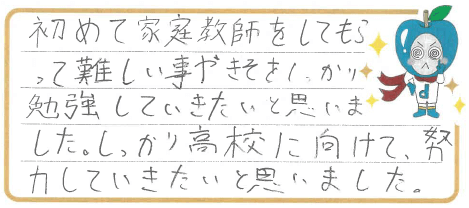 初めて家庭教師をしてもら
って難しい事やきそをしっかり
勉強していきたいと思いま
した。しっかり高校に向けて、努
力していきたいと思いました。